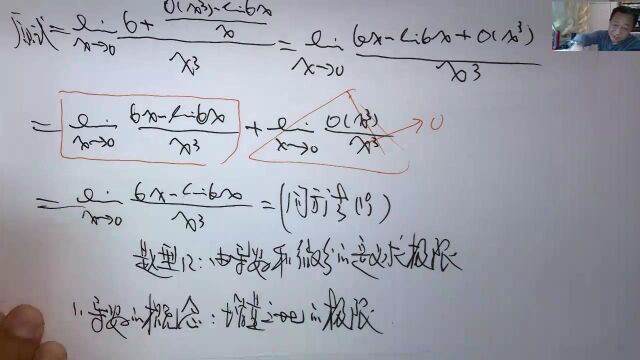 原式 = lim_{x→0} (6 + (o(x³) - sin6x)/x)/x³ = lim_{x→0} (6x - sin6x + o(x³))/x³
= lim_{x→0} (6x - sin6x)/x³ + lim_{x→0} o(x³)/x³ → 0
= lim_{x→0} (6x - sin6x)/x³ = (同方法1)
题型12:由导数和微分的定义求极限
1. 导数的概念:增量之比的极限